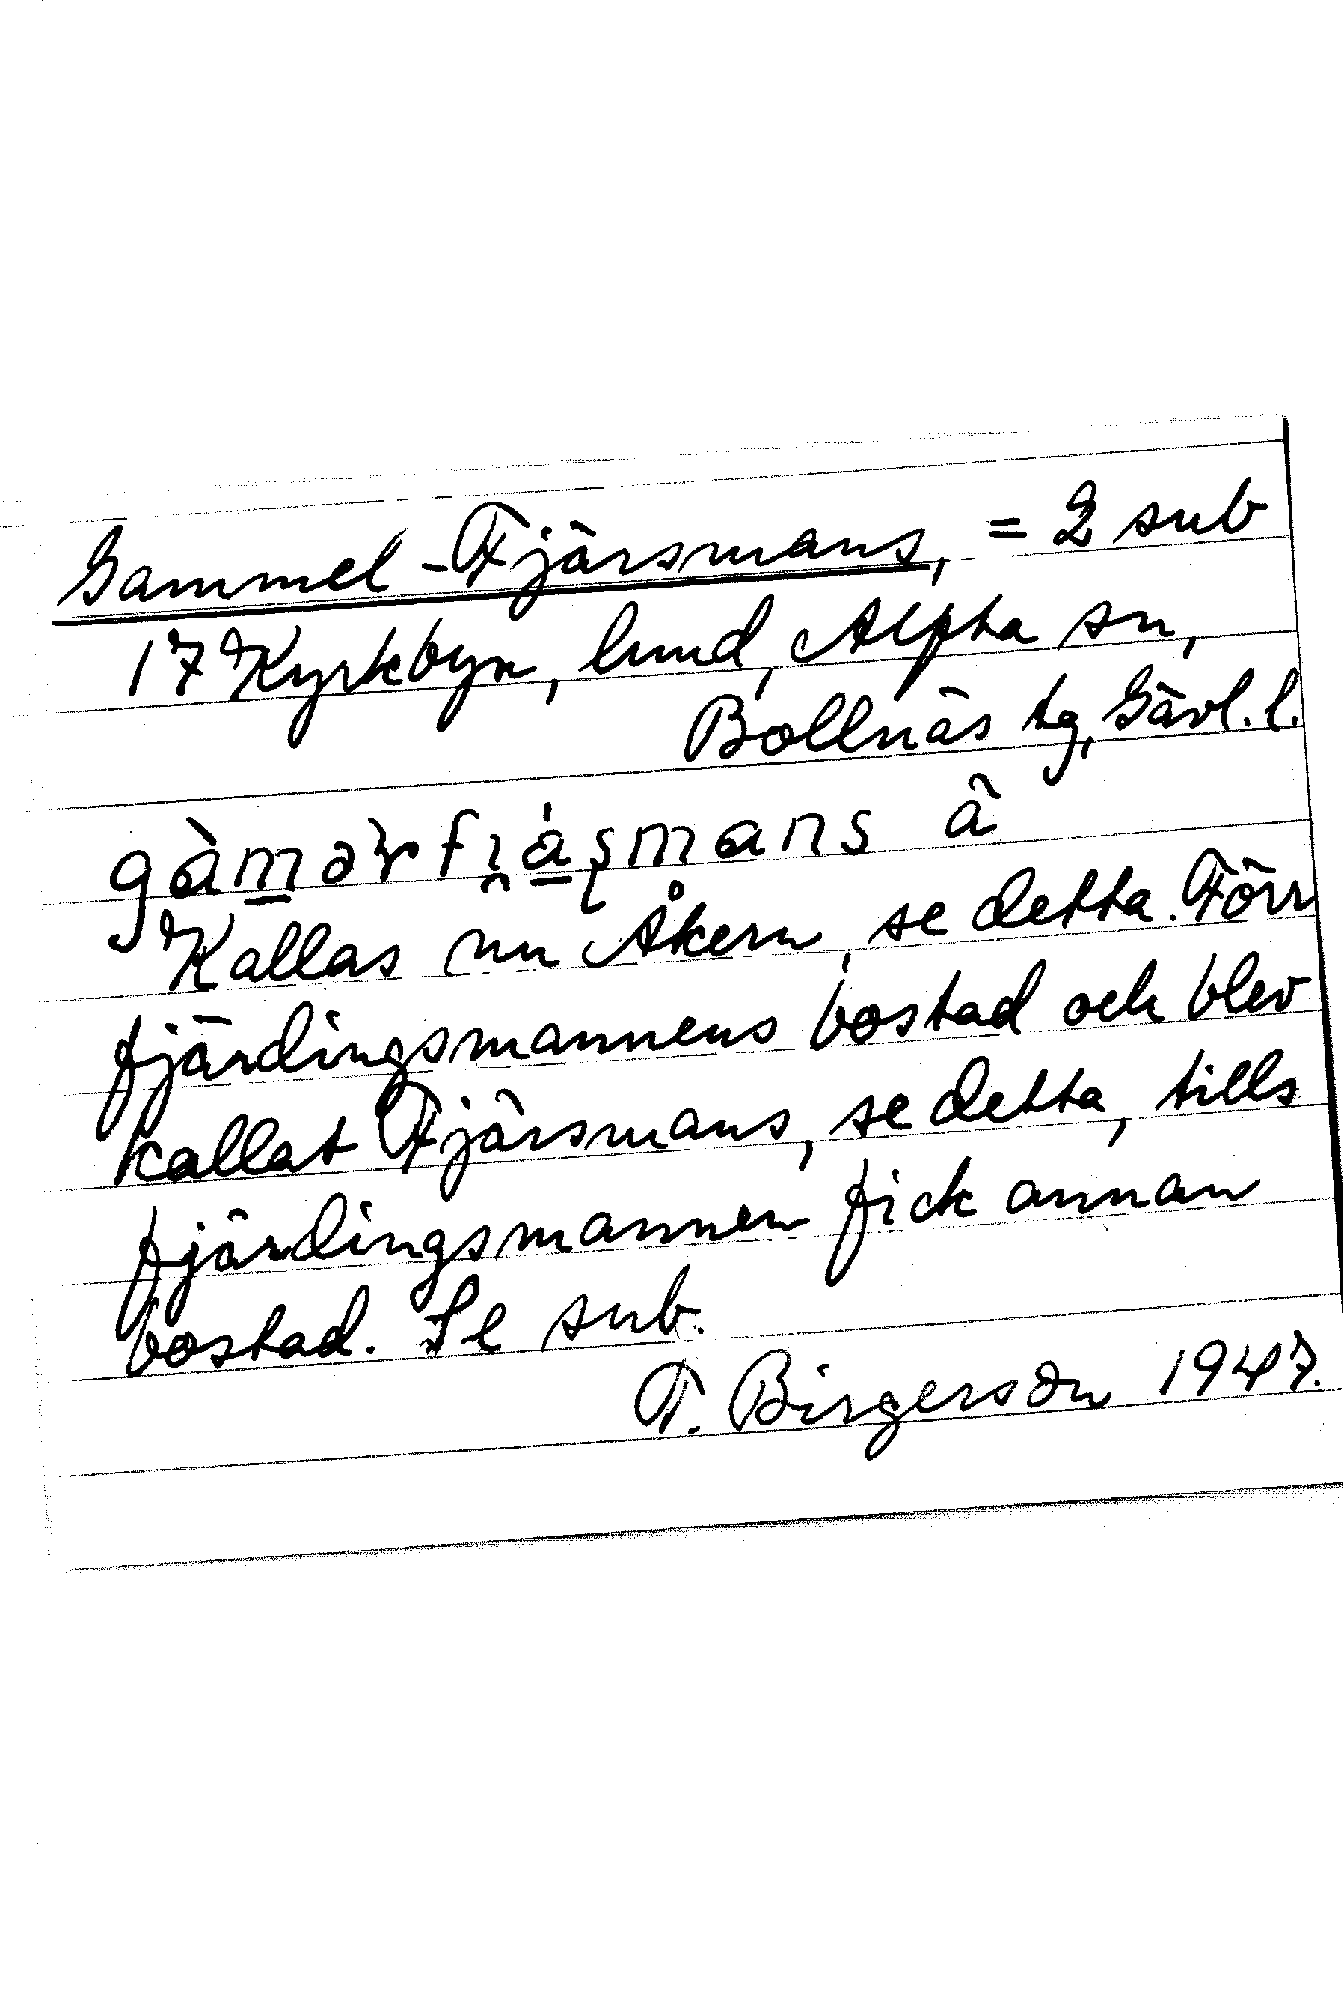 Gammel-Fjärsmans, = 2 sub
17 Kyrkbyn, lund, Alfta sn,
Bollnäs tg, Gävl. l.
Kallas nu Åkern, se detta. Förr
fjärdingsmannens bostad och blev
kallat Fjärsmans, se detta, tills
fjärdingsmannen fick annan
bostad. Se sub.
T. Birgerson 1947.